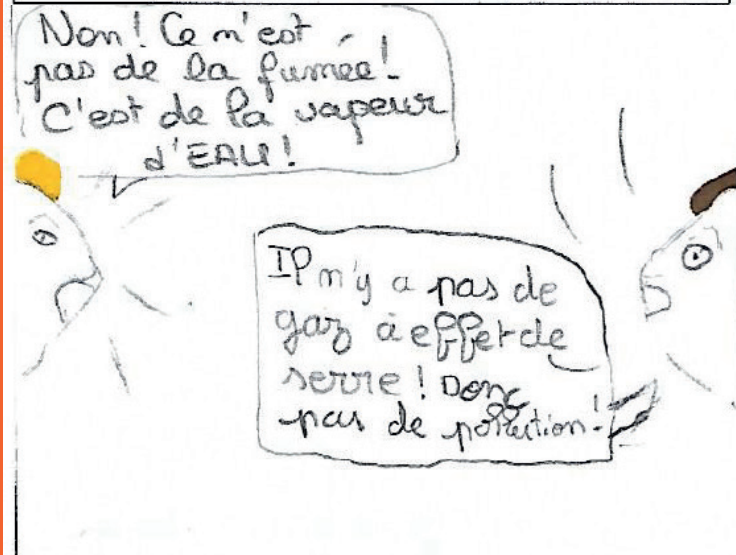 Non! Ce n'est
pas de la fumée!
C'est de la vapeur
d'EAU!
Il n'y a pas de
gaz à effet de
serre! Donc
pas de pollution!